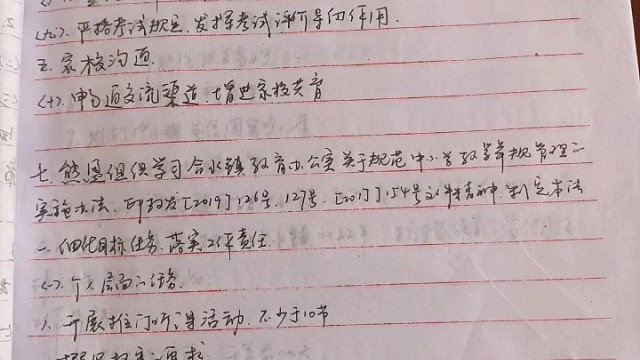 (九). 严格考试规定,发挥考试评价导向作用.
五. 家校沟通.
(十). 畅通交流渠道,增进家校共育
七、组织学习合水镇教育办公室关于规范中小学教学常规管理的
实施办法,印教发[2019]126号,127号,[2017]154号文件精神,制定本法
一、细化目标任务,落实工作责任.
(一). 个人层面的任务.
1. 开展推门听课活动,不少于10节